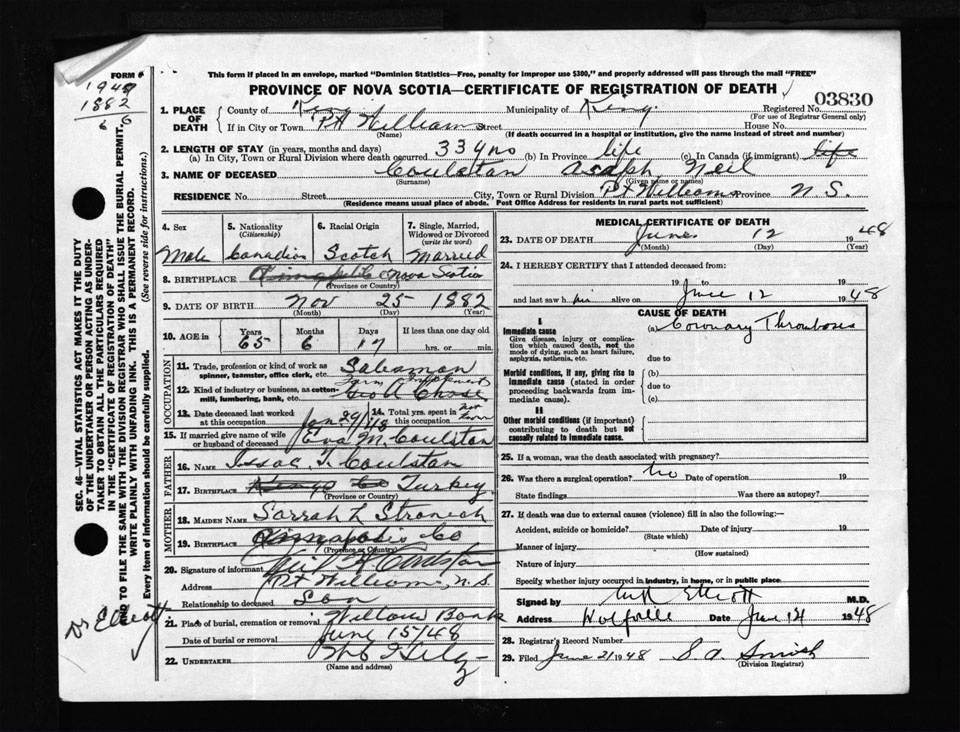 FORM 6
1948
1882
66
This form if placed in an envelope, marked "Dominion Statistics—Free, penalty for improper use $300," and properly addressed will pass through the mail "FREE"
PROVINCE OF NOVA SCOTIA—CERTIFICATE OF REGISTRATION OF DEATH
03830
1. PLACE OF DEATH County of Kings Municipality of Kings. Registered No.
(For use of Registrar General only)
If in City or Town Pt Williams Street House No.
(Name) (If death occurred in a hospital or institution, give the name instead of street and number)
2. LENGTH OF STAY (in years, months and days)
(a) In City, Town or Rural Division where death occurred 33 yrs (b) In Province life (c) In Canada (if immigrant) life
3. NAME OF DECEASED Coulstan Asaph Neil
(Surname) (Given name or names)
RESIDENCE No. Street City, Town or Rural Division Pt Williams Province N.S.
(Residence means usual place of abode. Post Office Address for residents in rural parts not sufficient)
4. Sex 5. Nationality (Citizenship) 6. Racial Origin 7. Single, Married, Widowed or Divorced (write the word)
Male Canadian Scotch Married
8. BIRTHPLACE Nova Scotia
(Province or Country)
9. DATE OF BIRTH Nov 25 1882
(Month) (Day) (Year)
10. AGE in Years Months Days If less than one day
65 6 17 hrs. or min.
OCCUPATION
11. Trade, profession or kind of work as spinner, teamster, office clerk, etc. Salesman
12. Kind of industry or business, as cotton-mill, lumbering, bank, etc. Farm Implement
Geo A Chase
13. Date deceased last worked at this occupation Jan 29/48 14. Total yrs. spent in this occupation
15. If married give name of wife or husband of deceased Eva M. Coulstan
FATHER
16. NAME Issac T. Coulstan
17. BIRTHPLACE Kings Co Turkey
(Province or Country)
MOTHER
18. MAIDEN NAME Sarrah L Stronach
19. BIRTHPLACE Annapolis Co
(Province or Country)
20. Signature of informant Coulstan
Address Pt Williams, N.S.
Relationship to deceased Son
21. Place of burial, cremation or removal Willow Bank
Date of burial or removal June 15/48
22. UNDERTAKER
(Name and address)
MEDICAL CERTIFICATE OF DEATH
23. DATE OF DEATH June 12 1948
(Month) (Day)
24. I HEREBY CERTIFY that I attended deceased from:
19 to 19
and last saw him alive on June 12 1948
CAUSE OF DEATH
I
Immediate cause (a) Coronary Thrombosis
Give disease, injury or complication which caused death, not the mode of dying, such as heart failure, asphyxia, asthenia, etc.
due to
Morbid conditions, if any, giving rise to immediate cause (stated in order proceeding backwards from immediate cause).
(b)
due to
(c)
II
Other morbid conditions (if important) contributing to death but not causally related to immediate cause.
25. If a woman, was the death associated with pregnancy?
26. Was there a surgical operation? no Date of operation 19
State findings Was there an autopsy?
27. If death was due to external causes (violence) fill in also the following:—
Accident, suicide or homicide? Date of injury 19
(State which)
Manner of injury
(How sustained)
Nature of injury
Specify whether injury occurred in industry, in home, or in public place
Signed by Elliott M.D.
Address Wolfville Date June 14 1948
28. Registrar's Record Number
29. Filed June 21 1948 S. A. Smith
(Division Registrar)
SEC. 46—VITAL STATISTICS ACT MAKES IT THE DUTY
OF THE UNDERTAKER OR PERSON ACTING AS UNDER-
TAKER TO OBTAIN ALL THE PARTICULARS REQUIRED
IN THE "CERTIFICATE OF REGISTRATION OF DEATH"
AND TO FILE THE SAME WITH THE DIVISION REGISTRAR WHO SHALL ISSUE THE BURIAL PERMIT.
WRITE PLAINLY WITH UNFADING INK. THIS IS A PERMANENT RECORD.
Every item of information should be carefully supplied. (See reverse side for instructions.)
Dr Elliott